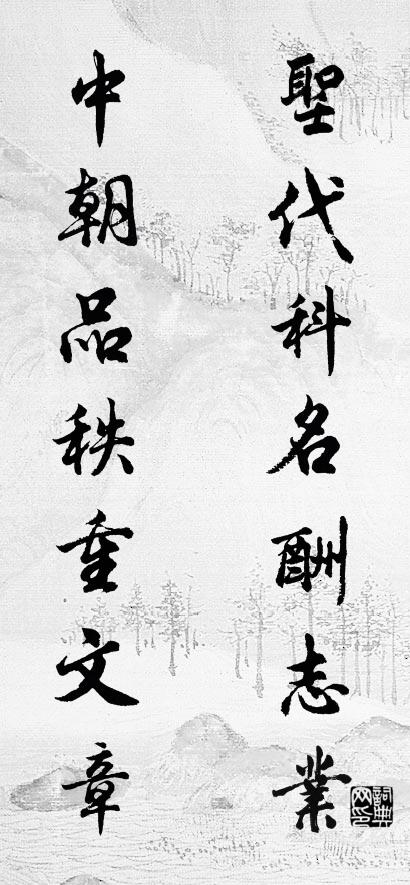 聖代科名酬志業
中朝品秩重文章
詞典網印